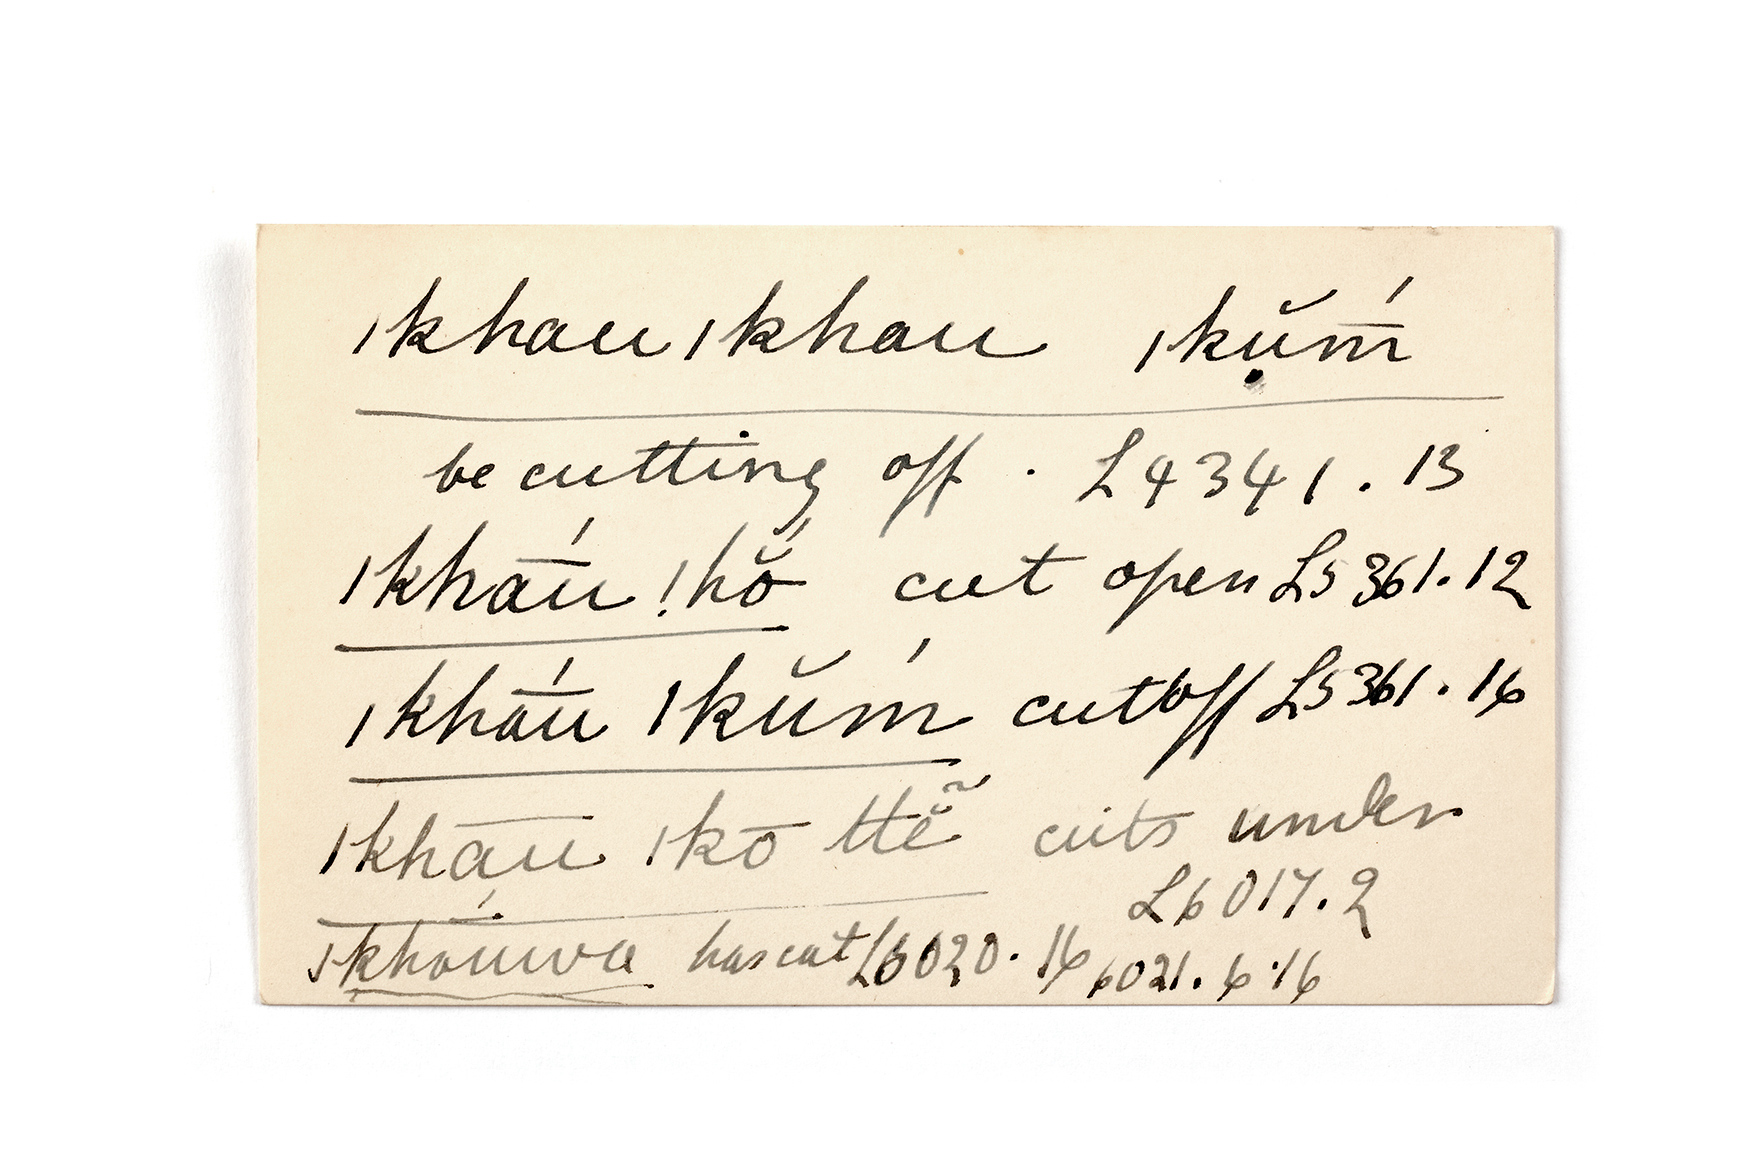 ǀkhauǀkhau ǀkụ̆m̄́
be cutting off . L4341.13
ǀkhā́u !hŏ́ cut open L5361.12
ǀkhā́u ǀkŭḿ cut off L5361.16
ǀkhạ̄u ǀkō ttĕ̃ cuts under
L6017.2
ǀkhā́uwa has cut L6020.16 6021.6.16